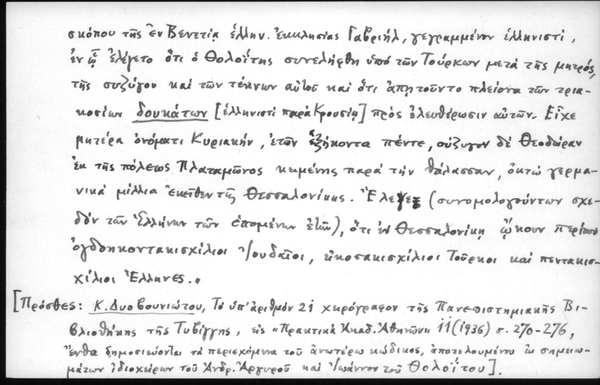 σκόπου τῆς ἐν Βενετίᾳ ἑλλην. ἐκκλησίας Γαβριήλ, γεγραμμένον ἑλληνιστί,
ἐν ᾧ ἐλέγετο ὅτι ὁ Θολοΐτης συνελήφθη ὑπὸ τῶν Τούρκων μετὰ τῆς μητρός,
τῆς συζύγου καὶ τῶν τέκνων αὐτοῦ καὶ ὅτι ἀπῃτοῦντο πλείονα τῶν τρια-
κοσίων δουκάτων [ἑλληνιστὶ παρὰ Κρουσίῳ] πρὸς ἐλευθέρωσιν αὐτῶν. Εἶχε
μητέρα ὀνόματι Κυριακήν, ἐτῶν ἑξήκοντα πέντε, σύζυγον δὲ Θεοδώραν
ἐκ τῆς πόλεως Πλαταμῶνος κειμένης παρὰ τὴν θάλασσαν, ὀκτὼ γερμα-
νικὰ μίλλια ἐκεῖθεν τῆς Θεσσαλονίκης. Ἔλεγε (συνομολογούντων σχε-
δὸν τῶν Ἑλλήνων τῶν ἑπομένων ἐτῶν), ὅτι ἐν Θεσσαλονίκῃ ᾤκουν περίπου
ὀγδοηκοντακισχίλιοι Ἰουδαῖοι, εἰκοσακισχίλιοι Τοῦρκοι καὶ πεντακισ-
χίλιοι Ἕλληνες."
[Πρόσθες: Κ. Δυοβουνιώτου, Τὸ ὑπ' ἀριθμὸν 21 χειρόγραφον τῆς Πανεπιστημιακῆς Βι-
βλιοθήκης τῆς Τυβίγγης, εἰς "Πρακτικὰ Ἀκαδ. Ἀθηνῶν 11 (1936) σ. 270-276,
ἔνθα δημοσιεύονται τὰ περιεχόμενα τοῦ ἀνωτέρω κώδικος, ἀποτελουμένου ἐκ σημειω-
μάτων ἰδιοχείρων τοῦ Ἀνδρ. Ἀργυροῦ καὶ Ἰωάννου τοῦ Θολοΐτου].